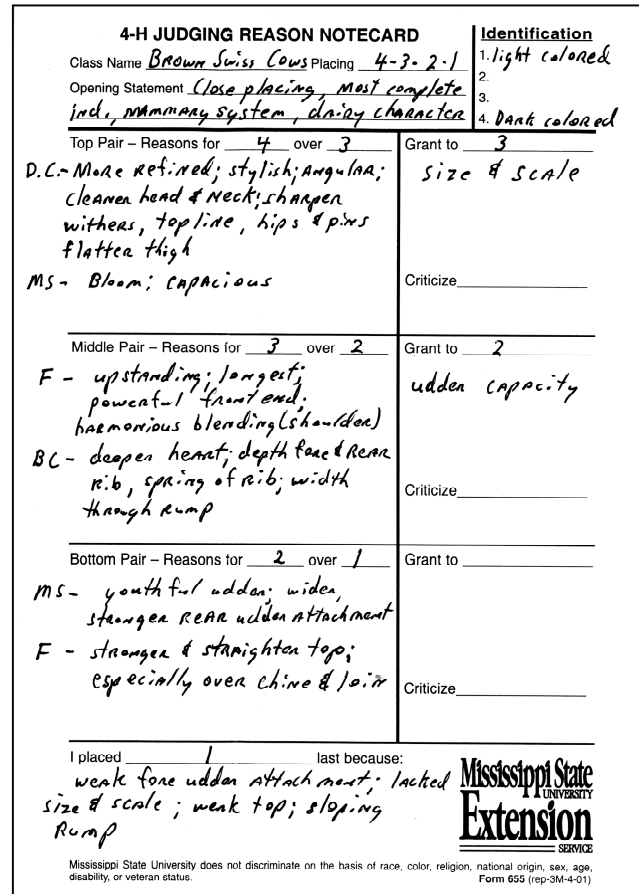 4-H JUDGING REASON NOTECARD
Class Name Brown Swiss Cows Placing 4-3-2-1
Opening Statement Close placing, most complete
ind., mammary system, dairy character
Identification
1. light colored
2.
3.
4. Dark colored
Top Pair – Reasons for 4 over 3
D.C. - More refined; stylish; angular;
cleaner head & neck; sharper
withers, topline, hips & pins
flatter thigh
MS - Bloom; capacious
Grant to 3
size & scale
Criticize
Middle Pair – Reasons for 3 over 2
F - upstanding; longest;
powerful front end;
harmonious blending (shoulder)
BC - deeper heart; depth fore & rear
rib, spring of rib; width
through rump
Grant to 2
udder capacity
Criticize
Bottom Pair – Reasons for 2 over 1
MS - youthful udder; wider,
stronger rear udder attachment
F - stronger & straighter top;
especially over chine & loin
Grant to
Criticize
I placed 1 last because:
weak fore udder attachment; lacked
size & scale; weak top; sloping
rump
Mississippi State
UNIVERSITY
Extension
SERVICE
Mississippi State University does not discriminate on the basis of race, color, religion, national origin, sex, age,
disability, or veteran status.
Form 655 (rep-3M-4-01)